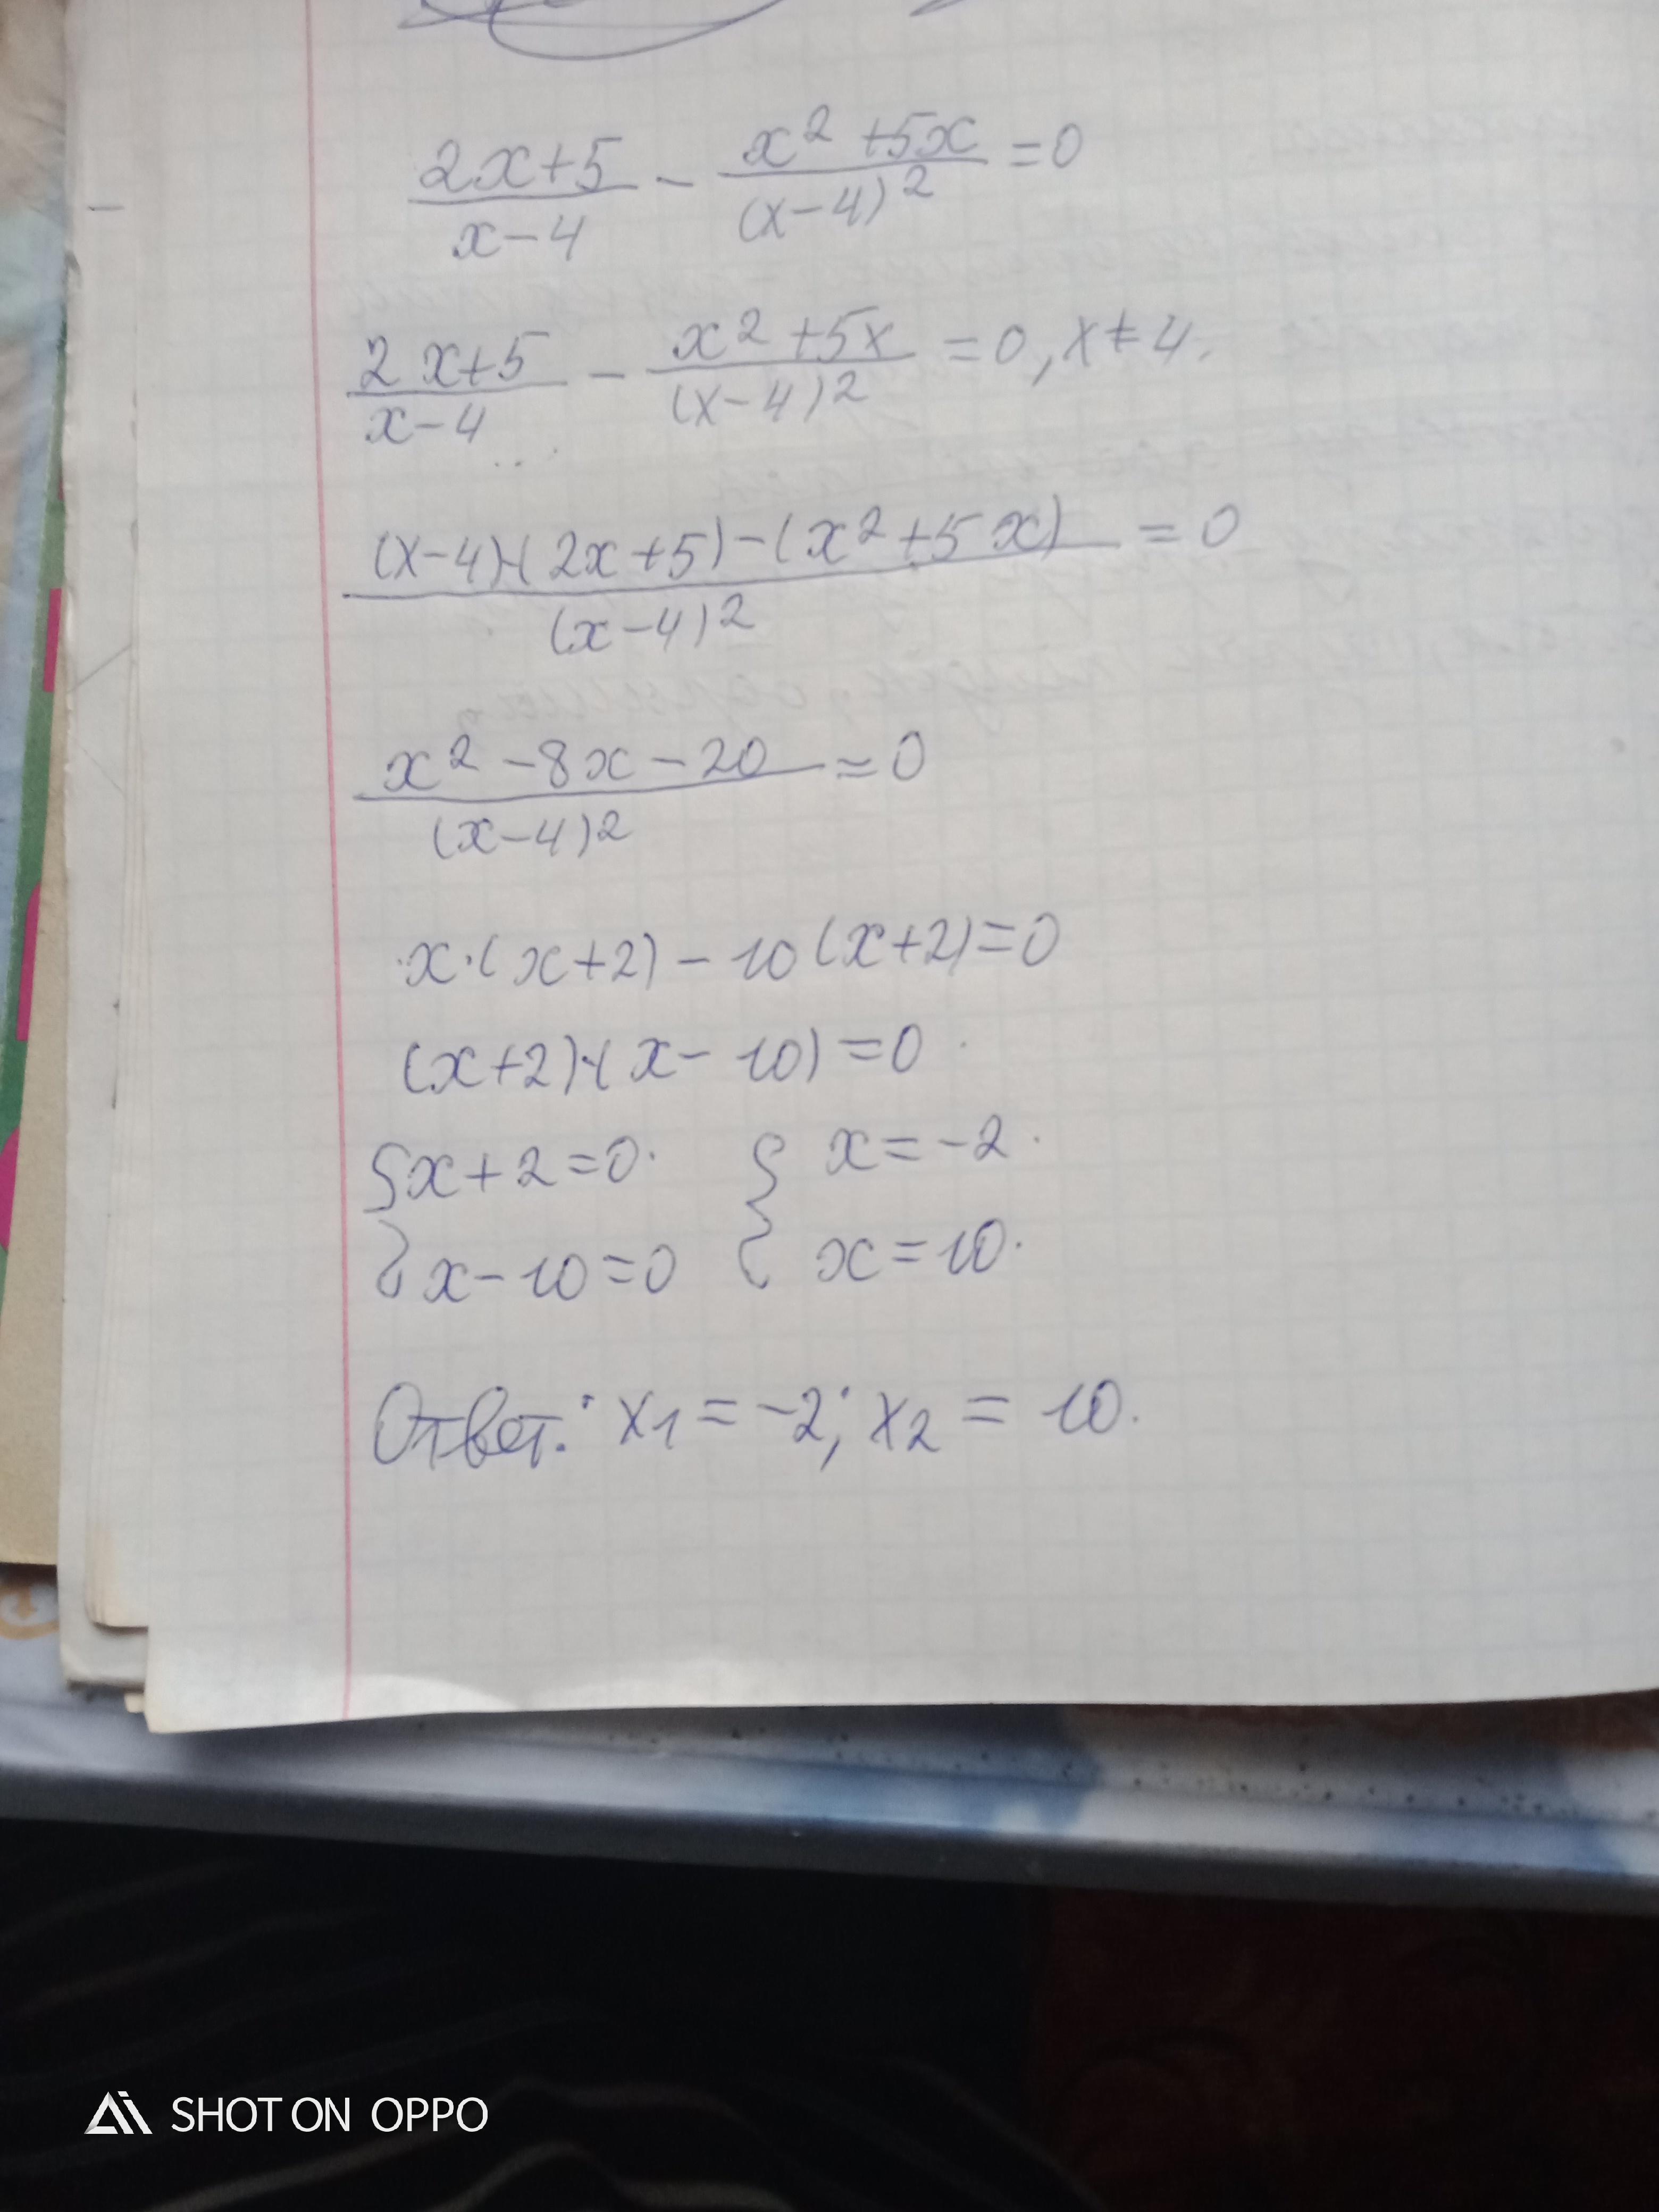 2x+5 / x-4 - x² +5x / (x-4)² =0
2x+5 / x-4 - x² +5x / (x-4)² =0, x≠4.
(x-4)·(2x+5)-(x²+5x) / (x-4)² =0
x²-8x-20 / (x-4)² =0
x·(x+2)-10(x+2)=0
(x+2)·(x-10)=0
{x+2=0. { x=-2.
x-10=0 x=10.
Ответ: x₁=-2; x₂=10.
SHOT ON OPPO